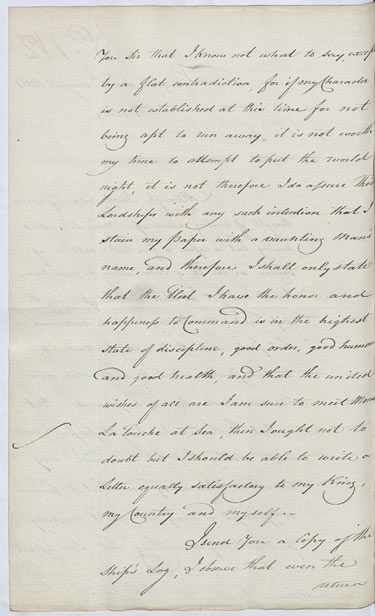 You Sir that I know not what to say, except
by a flat contradiction, for if my Character
is not established at this time for not
being apt to run away, it is not worth
my time to attempt to put the world
right, it is not therefore I do assure their
Lordships with any such intention that I
stain my paper with a vaunting Man's
name, and therefore I shall only state
that the Fleet I have the honor and
happiness to Command is in the highest
state of discipline, good order, good humor
and good health, and that the united
wishes of all are I am sure to meet Monsr
La Touche at Sea, then I ought not to
doubt but I should be able to write a
Letter equally satisfactory to my King,
my Country and myself.
I send You a Copy of the
Ship's Log, I observe that even the
return